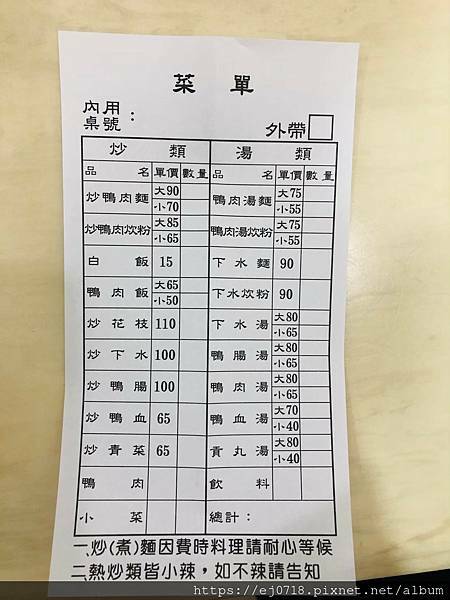 菜 單
內用
桌號：
外帶□
炒 類 湯 類
品 名 單價 數量 品 名 單價 數量
炒鴨肉麵 大90 小70 鴨肉湯麵 大75 小55
炒鴨肉炊粉 大85 小65 鴨肉湯炊粉 大75 小55
白 飯 15 下水麵 90
鴨肉飯 大65 小50 下水炊粉 90
炒花枝 110 下水湯 大80 小65
炒下水 100 鴨腸湯 大80 小65
炒鴨腸 100 鴨肉湯 大80 小65
炒鴨血 65 鴨血湯 大70 小40
炒青菜 65 貢丸湯 大80 小40
鴨 肉 飲 料
小 菜 總計：
一.炒(煮)麵因費時料理請耐心等候
二.熱炒類皆小辣，如不辣請告知
https://ej0718.pixnet.net/album